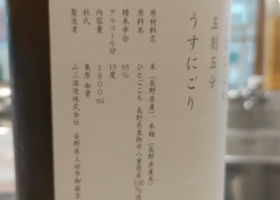 五割五分
うすにごり
原材料名 米(長野県産)、米麹(長野県産米)
原料米 ひとごこち 長野県東御市八重原産100%使
精米歩合 55%
アルコール分 15度
内容量 1800ml
杜氏 栗原由貴
製造者 山三酒造株式会社 長野県上田市御嶽堂